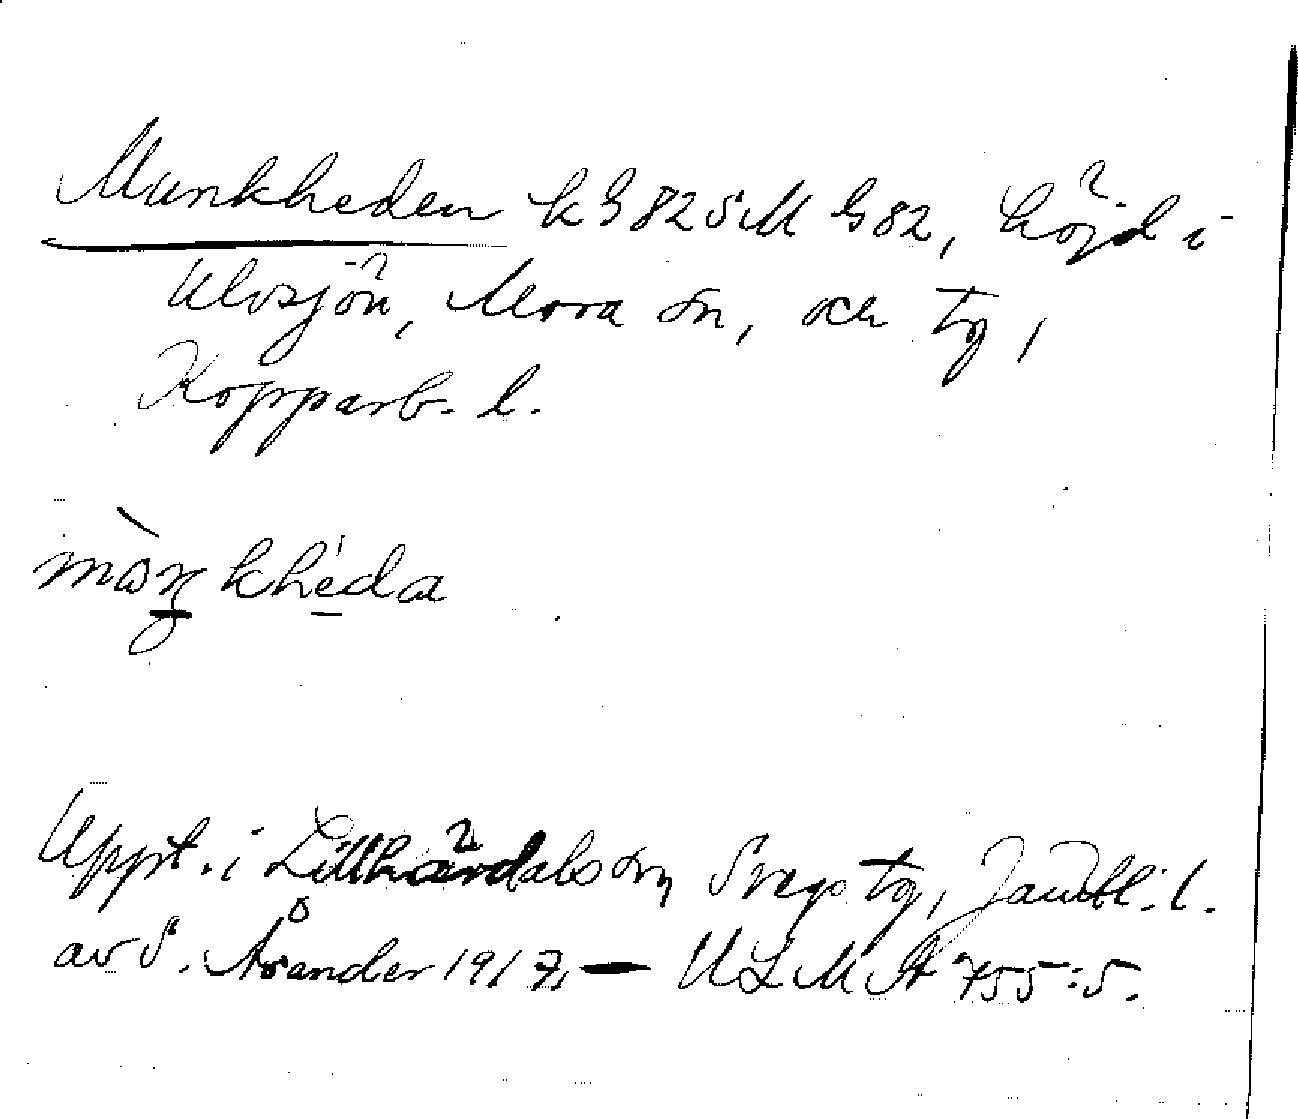 Munkheden k G 82 SM G 82, höjd i
Ulvsjön, Mora sn, och tg,
Kopparb. l.
mɷ̀ŋkhéda
Uppt. i Lillhärdals sn, Svegs tg, Jämtl. l.
av S. Åsander 1917, — ULMA 755:5.